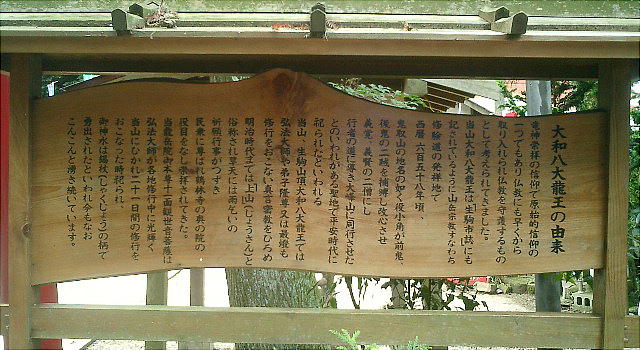 大和八大龍王の由来
竜神崇拝の信仰で原始的信仰の
一つでもあり仏教にも早くから
取り入れられ仏教を守護するもの
として考えられてきました。
当山大和八大龍王は生駒市誌にも
記されているように山を宗教すなわち
修験道の発祥地で
西暦 六百五十八年頃、
鬼取山の地名の如く役小角が前鬼、
後鬼の二賊を捕縛し改心させ
義覚、義賢の二僧にし
行者の道に導き大峰山に同行させた
とのいわれがある聖地で平安時代に
祀られたといわれる
当山 生駒山頂大和八大龍王では
弘法大師や弟子隆尊又は最澄も
修行をおこない真言密教をひろめ
明治時代までは上山(じょうさん)と
俗称され旱天には雨乞いの
祈願行事がつづき
民衆に尊ば鶴林寺の奥の院の
役目をなし継承されてきた。
当龍岳院御本尊十一面観世音菩薩は
弘法大師が各地修行中に光輝く
当山にひかれ二十一日間の修行を
おこなった時祀られ、
御神水は錫杖(しゃくじょう)の柄で
勇出されたといわれ今もなお
こんこんと湧き続いています。